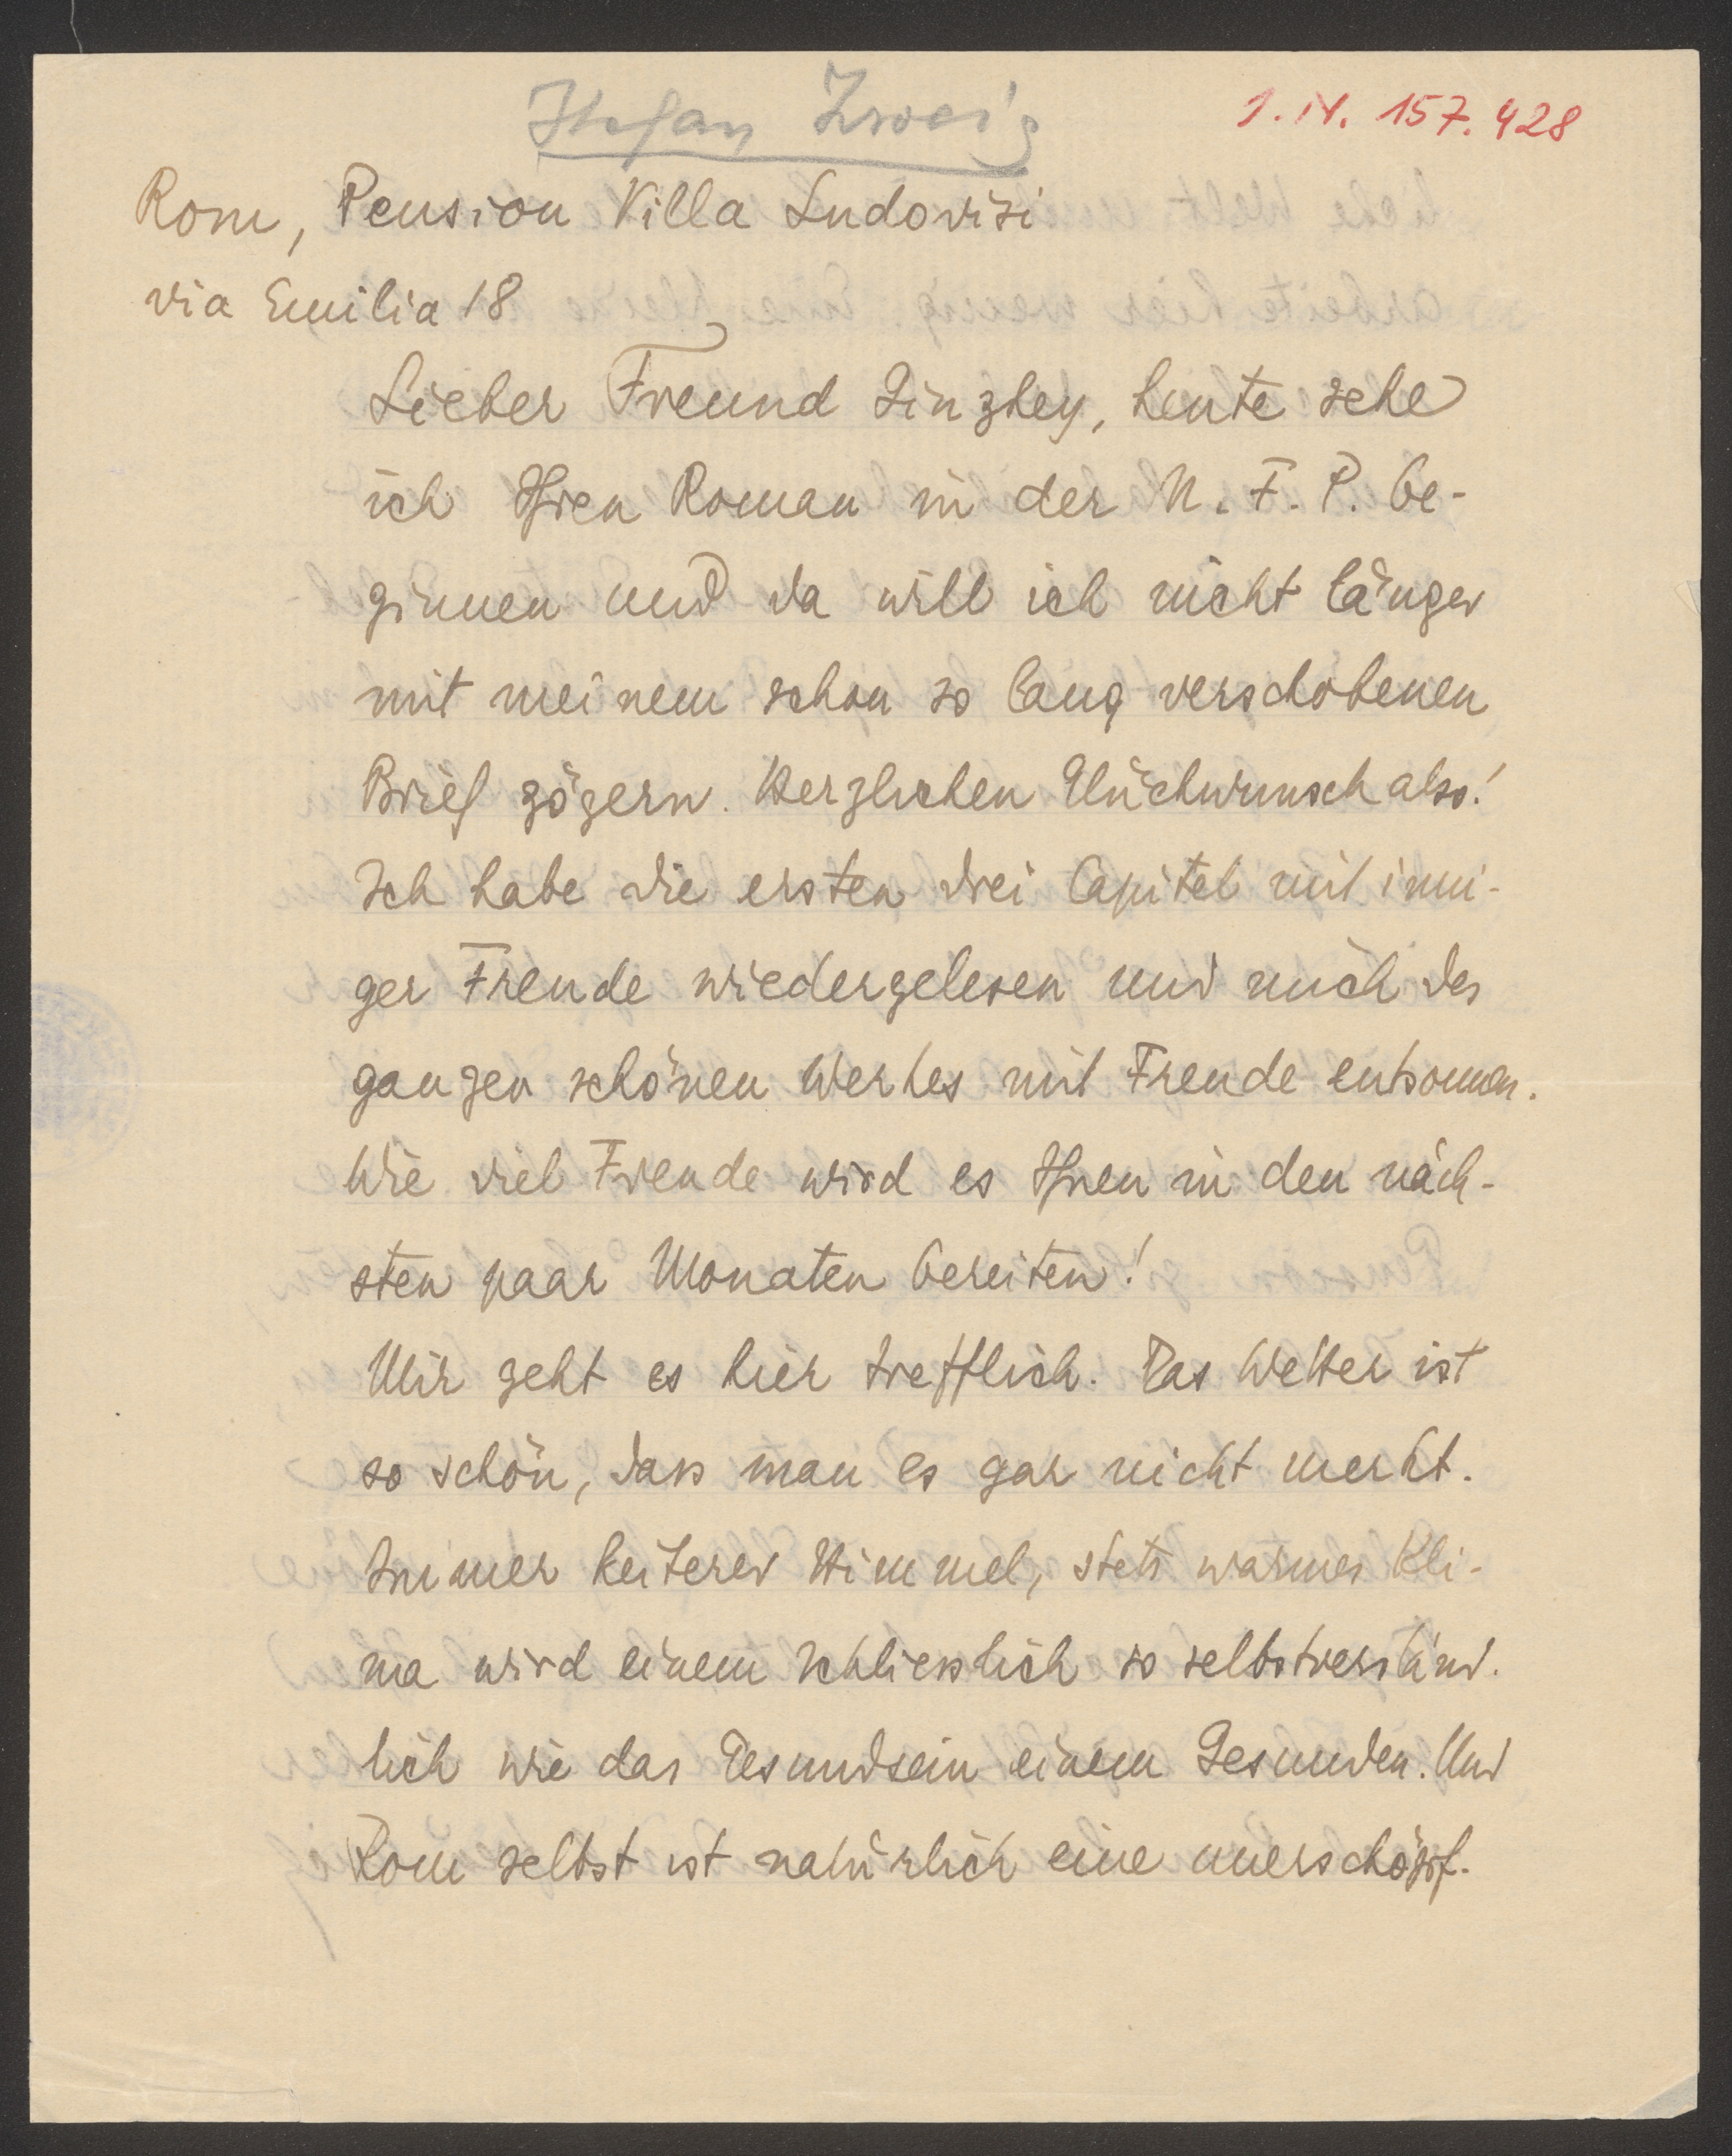 Stefan Zweig
I.N. 157.428
Rom, Pension Villa Ludovisi
via Emilia 18
Lieber Freund Ginzkey, heute sehe
ich Ihren Roman in der N. F. P. be-
ginnen und da will ich nicht länger
mit meinem schon so lang verschobenen
Brief zögern. Herzlichen Glückwunsch also!
Ich habe die ersten drei Capitel mit inni-
ger Freude wiedergelesen und mich des
ganzen schönen Werkes mit Freude entsonnen.
Wie viel Freude wird es Ihnen in den näch-
sten paar Monaten bereiten!
Mir geht es hier trefflich. Das Wetter ist
so schön, dass man es gar nicht merkt.
Immer heiterer Himmel, stets warmes Kli-
ma wird einem schliesslich so selbstverständ-
lich wie das Gesundsein einem Gesunden. Und
Rom selbst ist natürlich eine unerschöpf-